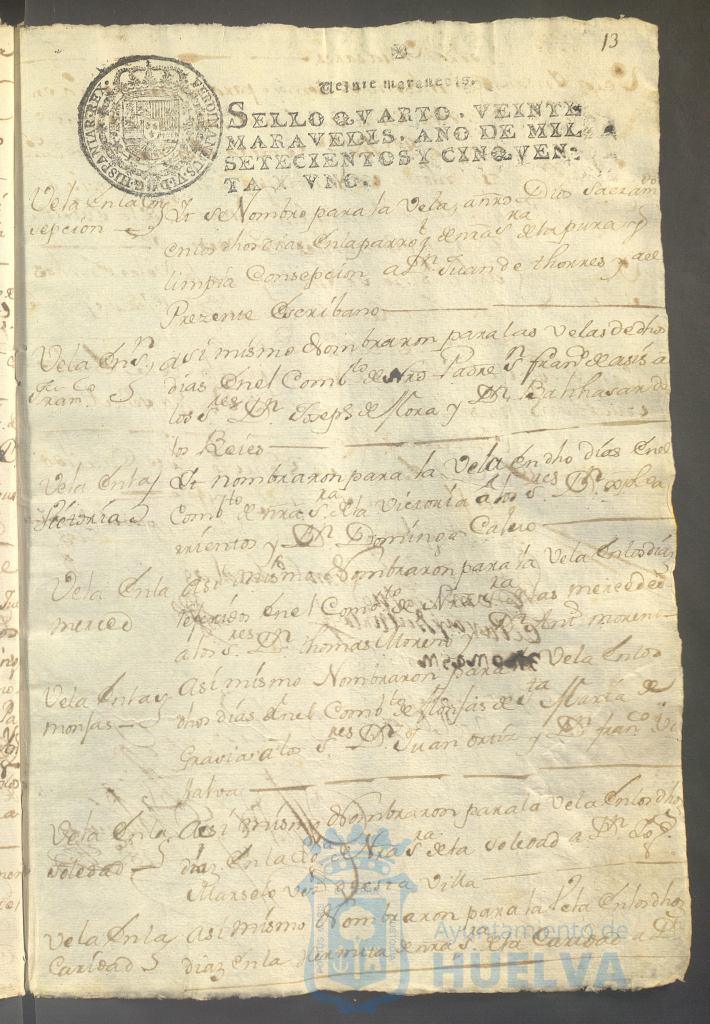 13
Veinte maravedis.
FERDINANDUS VI D G HISPANIAR REX
SELLO QVARTO, VEINTE
MARAVEDIS, AÑO DE MIL
SETECIENTOS Y CINQVEN-
TA Y VNO.
Vela En la Con
sepcion
Yt se Nombro para la Vela, a nro Dio Sacram.to
en los dhos dias En la parroq.l de nra S.ra de la pura y
limpia Consepcion a D.n Juan de thorres y a el
Prezente Escribano
Vela En S.n
Fran.co
asi mismo Nombraron para las Velas de dhos
dias En el Comb.to de Nro Padre S.n Fran.co de asis a
los S.res D.n Joseph de Mora y D.n Balthasar de
los Reies
Vela En la
Victoria
Yt nombraron para la Vela En dho dias En el
Comb.to de nra S.ra de la Victoria a los S.res D.n
y D.n Domingo Calero
Vela En la
merced
Asi mismo Nombraron para la Vela En los dias
referidos En el Comb.to de Nra S.ra de las mercedes
a los S.res D.n thomas Moreno D.n Ant.o
Vela En las
monjas
Asi mismo Nombraron para la Vela En los
dhos dias En el Comb.to de Monjas de S.ta Maria de
Gracia a los S.res D.n Juan ortiz y D.n fran.co
Vela En la
Soledad
Asi mismo Nombraron para la Vela En los dho
diaz En la de Nra S.ra de la Soledad a D.n
Marselo de esta Villa
Vela En la
Caridad
Asi mismo Nombraron para la Vela En los dho
diaz En la Hermita de nra S.ra de la Caridad a D.n
Ayuntamiento de
HUELVA